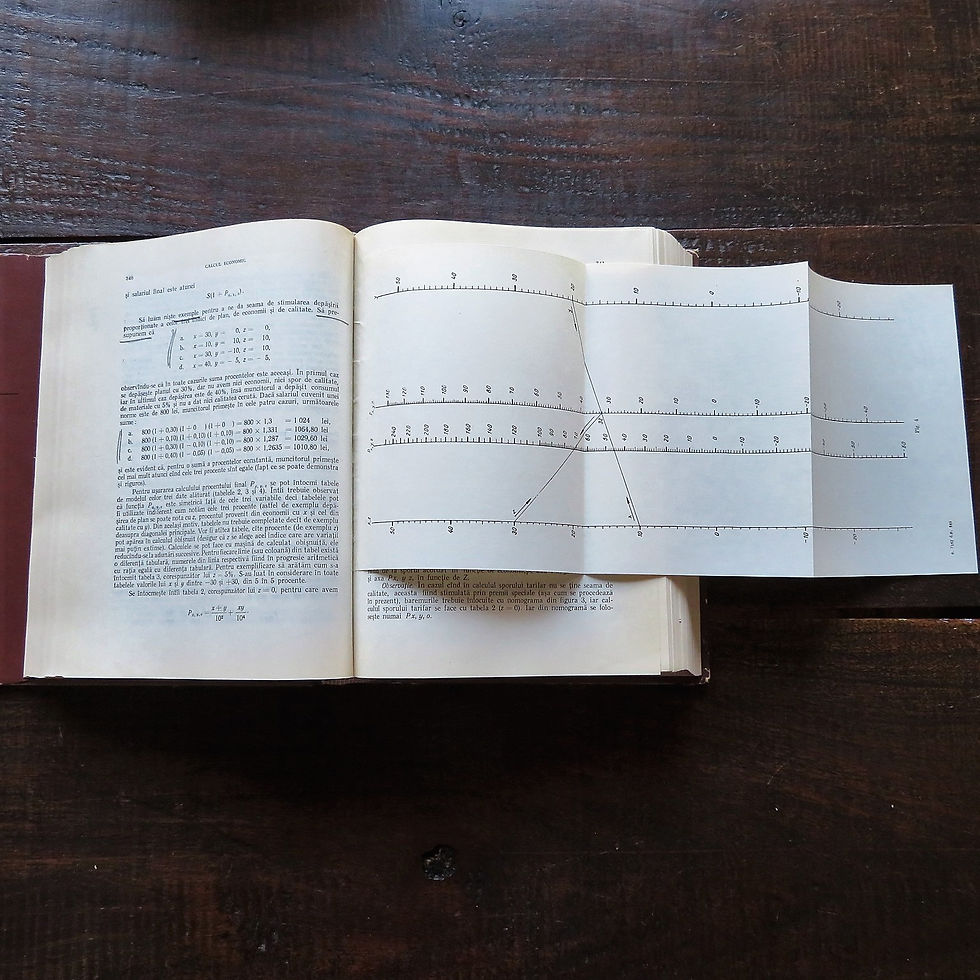 CALCUL ECONOMIC
și salariul final este atunci
Să luăm niște exemple pentru a ne da seama de stimularea depășirii
proporționate a celor trei indici de plan, de economii și de calitate. Să pre-
supunem că
a. x = 30, y = 0, z = 0,
b. x = 10, y = 10, z = 10,
c. x = 30, y = −10, z = 10,
d. x = 40, y = − 5, z = − 5,
observîndu-se că în toate cazurile suma procentelor este aceeași. În primul caz
se depășește planul cu 30%, dar nu avem nici economii, nici spor de calitate,
iar în ultimul caz depășirea este de 40%, însă muncitorul a depășit consumul
de materiale cu 5% și nu a dat nici calitatea cerută. Dacă salariul cuvenit unei
norme este de 800 lei, muncitorul primește în cele patru cazuri, următoarele
sume:
a. 800 (1 + 0,30) (1 − 0 ) (1 + 0 ) = 800 × 1,3 = 1 024 lei,
b. 800 (1 + 0,10) (1 + 0,10) (1 + 0,10) = 800 × 1,331 = 1064,80 lei
c. 800 (1 + 0,30) (1 − 0,10) (1 + 0,10) = 800 × 1,287 = 1029,60 lei
d. 800 (1 + 0,40) (1 − 0,05) (1 − 0,05) = 800 × 1,2635 = 1010,80 lei,
și este evident că, pentru o sumă a procentelor constantă, muncitorul primește
cel mai mult atunci cînd cele trei procente sînt egale (fapt ce se poate demonstra
și riguros).
Pentru ușurarea calculului procentului final se pot întocmi tabele
de modelul celor trei date alăturat (tabelele 2, 3 și 4). Întîi trebuie observat
că funcția este simetrică față de cele trei variabile deci tabelele pot
fi utilizate indiferent cum notăm cele trei procente (astfel de exemplu depă-
șirea de plan se poate nota cu z, procentul provenit din economii cu x și cel din
calitate cu y). Din același motiv, tabelele nu trebuie completate decît de exemplu
deasupra diagonalei principale. Vor fi atîtea tabele, cîte procente (de exemplu z)
pot apărea în calculul obișnuit (desigur că z se alege acel indice care are variații
mai puțin extinse). Calculele se pot face cu mașina de calculat obișnuită, ele
reducîndu-se la adunări succesive. Pentru fiecare linie (sau coloană) din tabel există
o diferență tabulară, numerele din linia respectivă fiind în progresie aritmetică
cu rația egală cu diferența tabulară. Pentru exemplificare să arătăm cum s-a
întocmit tabela 3, corespunzător lui z = 5%. S-au luat în considerare în toate
tabelele valorile lui x și y dintre −30 și +30, din 5 în 5 procente.
Se întocmește întîi tabela 2, corespunzător lui z = 0, pentru care avem
și axa Px, y z, în funcție de Z.
Observație. În cazul cînd în calculul sporului tarifar nu se ține seama de
calitate, aceasta fiind stimulată prin premii speciale (așa cum se procedează
în prezent), baremurile trebuie înlocuite cu nomograma din figura 3, iar cal-
culul sporului tarifar se face cu tabela 2 (z = 0). Iar din nomogramă se folo-
sește numai Px, y, o.
50 40 30 20 10 0 −10 −20
50 40 30 20 10 0 −10 −20
Fig. 4